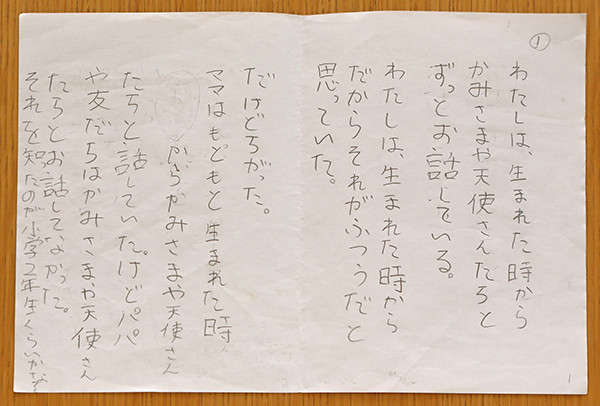 ①
わたしは、生まれた時から
かみさまや天使さんたちと
ずっとお話している。
わたしは、生まれた時から
だからそれがふつうだと
思っていた。
だけどちがった。
ママはもともと生まれた時
からかみさまや天使さん
たちと話していた。けどパパ
や友だちはかみさまや天使さん
たちとお話してなかった。
それを知ったのが小学2年生くらいかなぁ
1